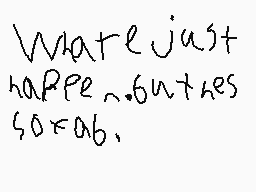 Whate just
happen.but hes
so rab.